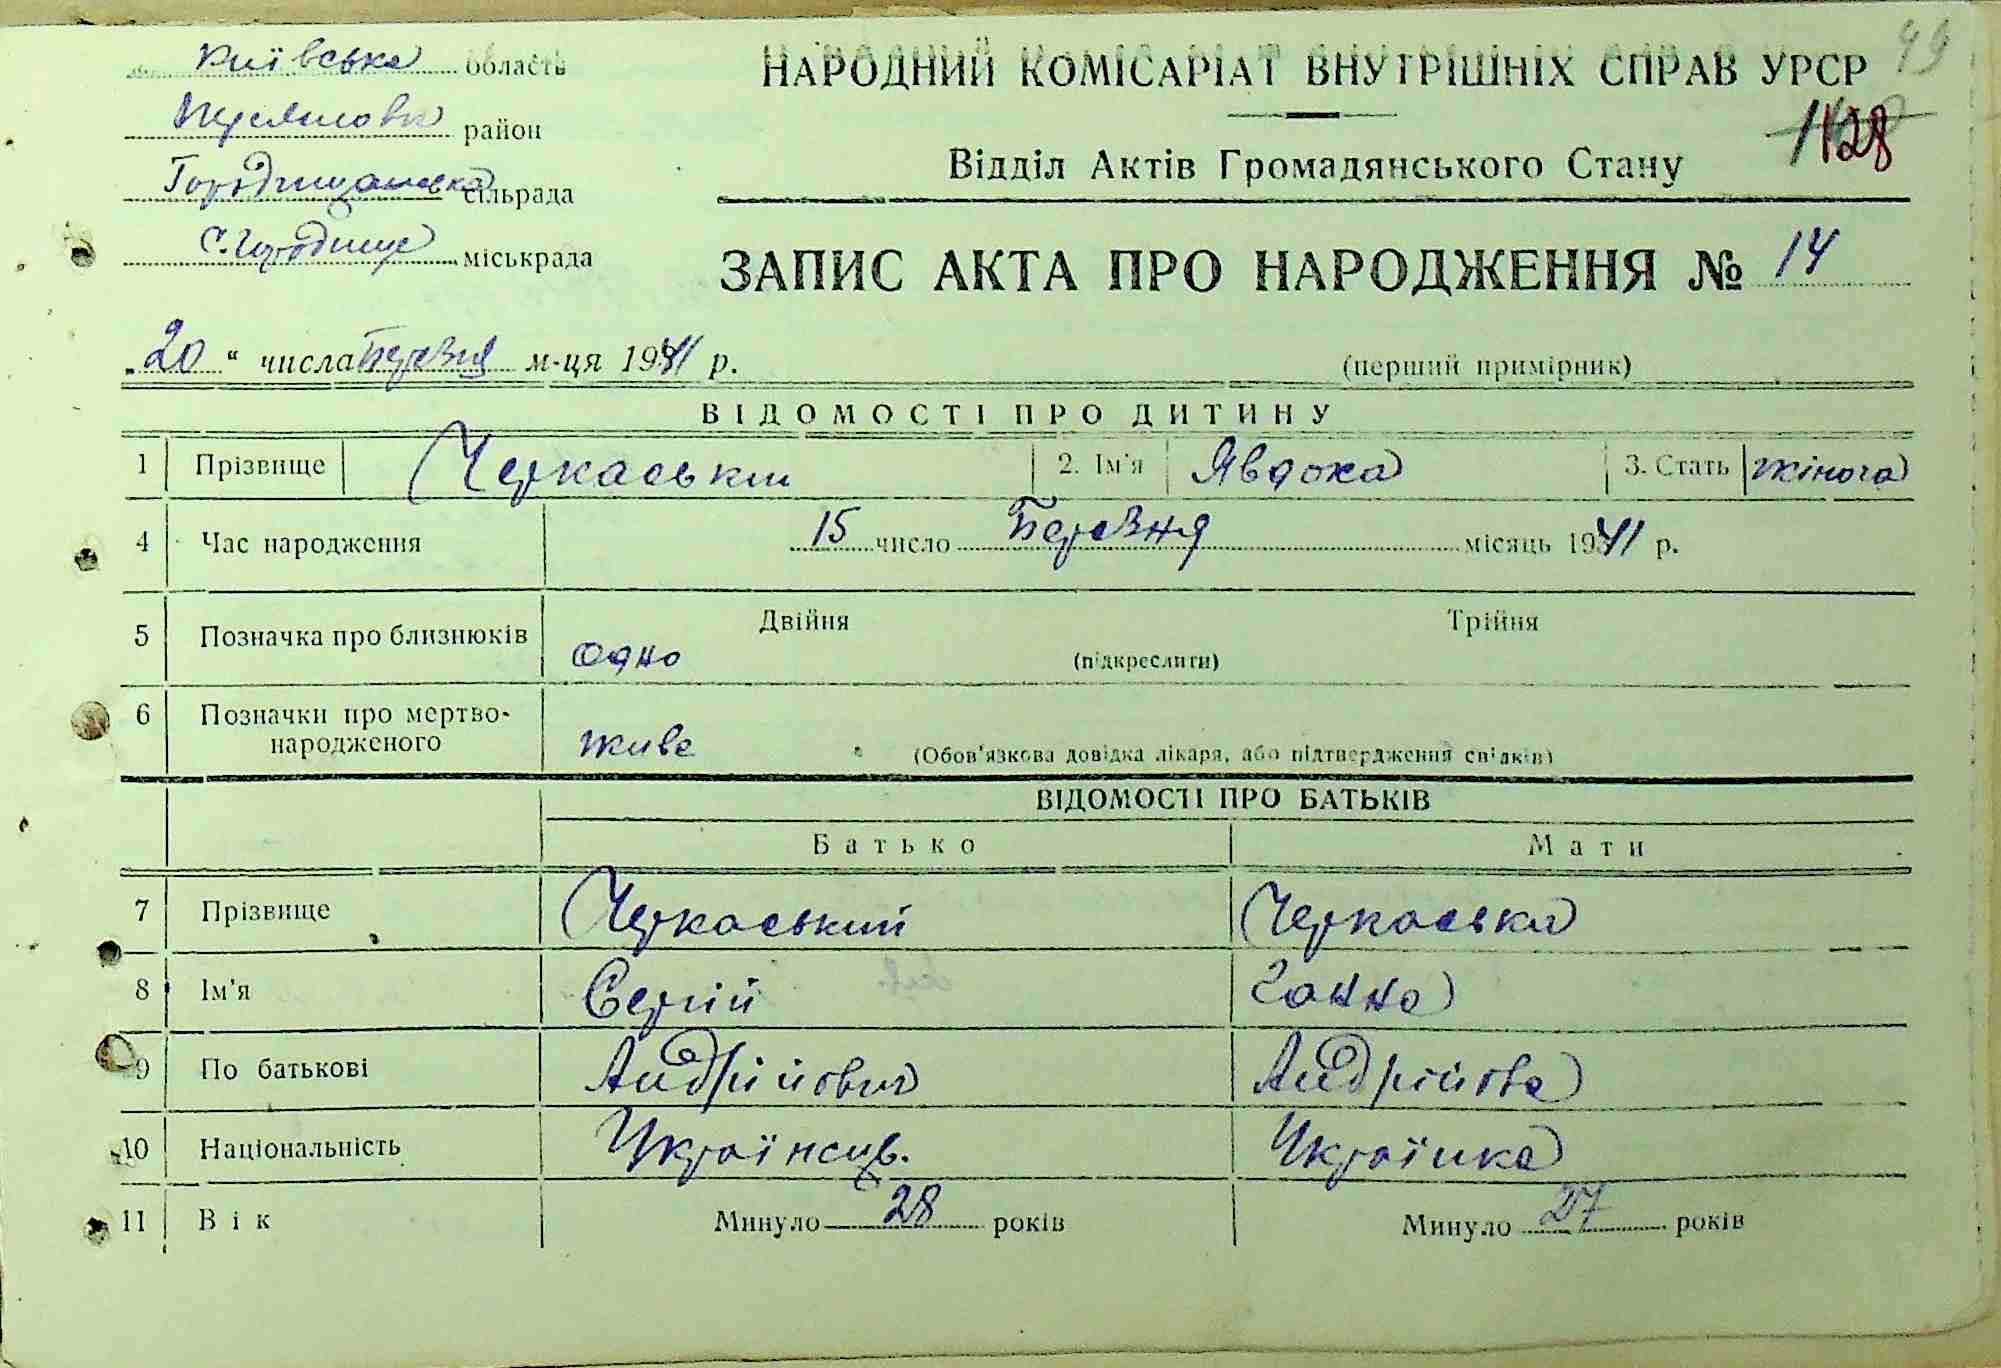 Київська область
район
Городищанська сільрада
С. Городище міськрада
НАРОДНИЙ КОМІСАРІАТ ВНУТРІШНІХ СПРАВ УРСР
49
128
Відділ Актів Громадянського Стану
ЗАПИС АКТА ПРО НАРОДЖЕННЯ № 14
„20“ числа Березня м-ця 1941 р.
(перший примірник)
ВІДОМОСТІ ПРО ДИТИНУ
1 Прізвище Черкаськи 2. Ім'я Явдоха 3. Стать жіноча
4 Час народження 15 число Березня місяць 1941 р.
5 Позначка про близнюків одно Двійня (підкреслити) Трійня
6 Позначки про мертво-
народженого живе (Обов'язкова довідка лікаря, або підтвердження свідків)
ВІДОМОСТІ ПРО БАТЬКІВ
Батько Мати
7 Прізвище Черкаський Черкаська
8 Ім'я Сергій Ганна
9 По батькові Андрійович Андріївна
10 Національність Українець. Українка
11 Вік Минуло 28 років Минуло 27 років